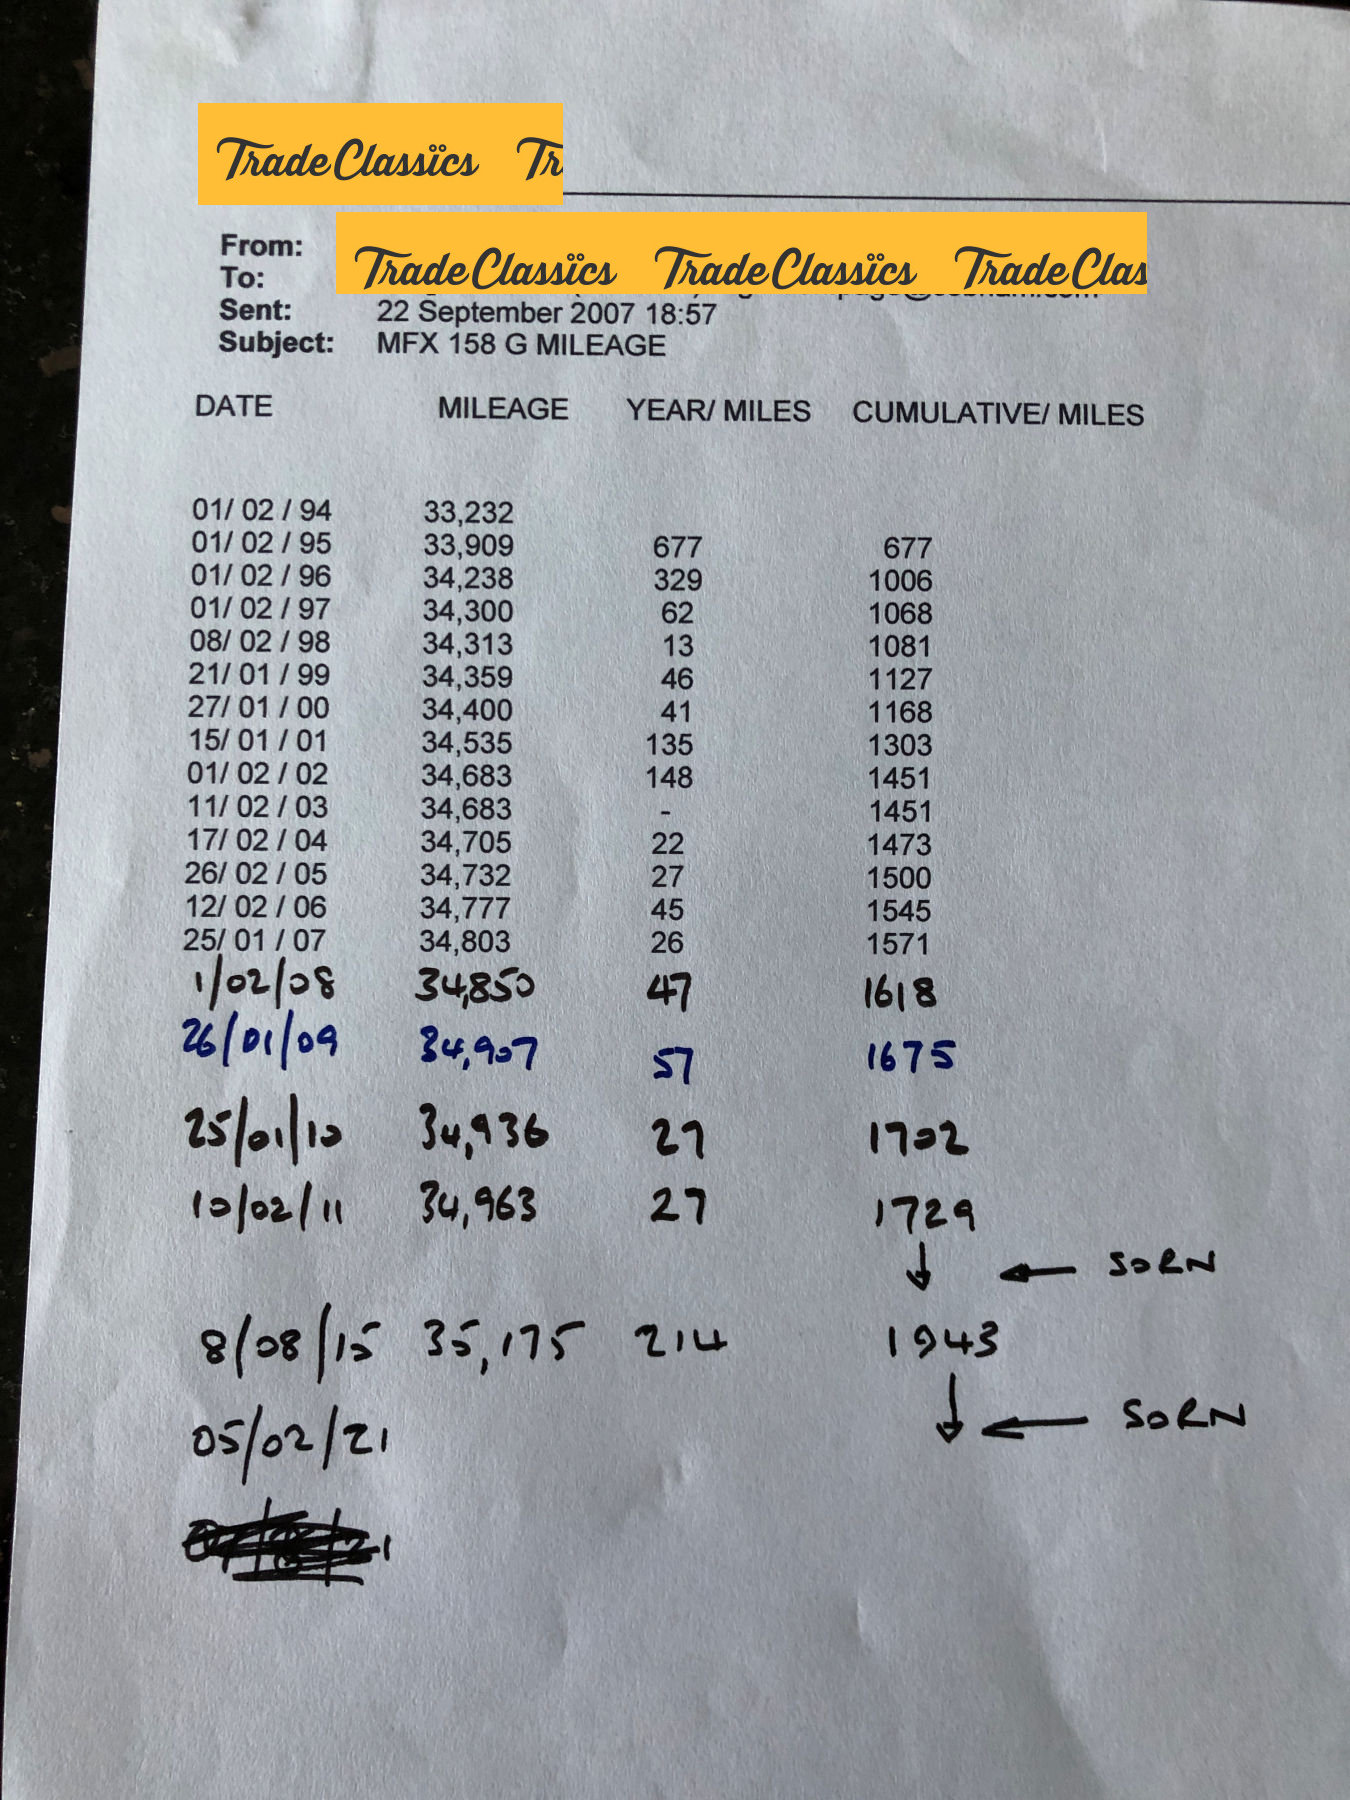 Trade Classïcs Tr
From: Trade Classïcs Trade Classïcs Trade Clas
To:
Sent: 22 September 2007 18:57
Subject: MFX 158 G MILEAGE
DATE MILEAGE YEAR/ MILES CUMULATIVE/ MILES
01/ 02 / 94 33,232
01/ 02 / 95 33,909 677 677
01/ 02 / 96 34,238 329 1006
01/ 02 / 97 34,300 62 1068
08/ 02 / 98 34,313 13 1081
21/ 01 / 99 34,359 46 1127
27/ 01 / 00 34,400 41 1168
15/ 01 / 01 34,535 135 1303
01/ 02 / 02 34,683 148 1451
11/ 02 / 03 34,683 - 1451
17/ 02 / 04 34,705 22 1473
26/ 02 / 05 34,732 27 1500
12/ 02 / 06 34,777 45 1545
25/ 01 / 07 34,803 26 1571
1/02/08 34,850 47 1618
26/01/09 34,907 57 1675
25/01/10 34,936 27 1702
10/02/11 34,963 27 1729
↓ ← SORN
8/08/15 35,175 214 1943
↓ ← SORN
05/02/21